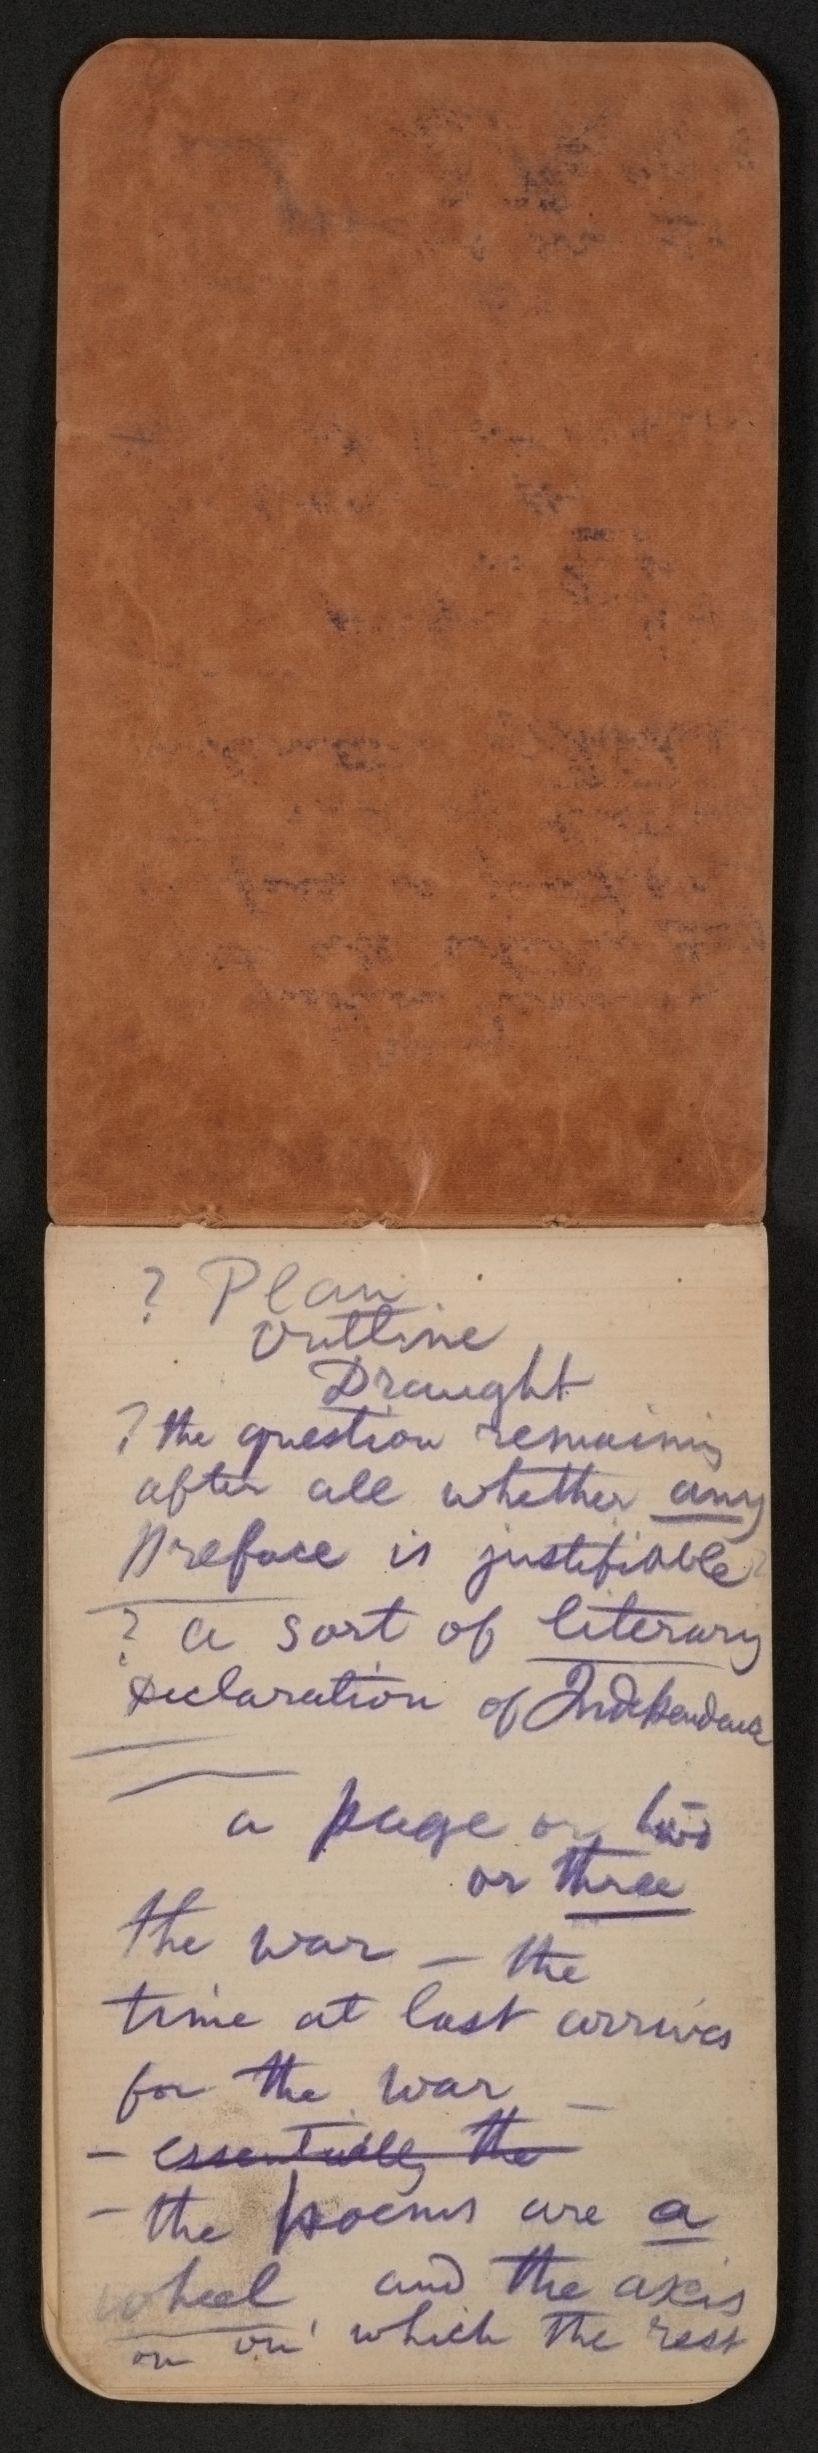 ? Plan
Outline
Draught
? the question remaining
after all whether any
Preface is justifiable?
? a sort of literary
Declaration of Independence
a page or two
or three
the war – the
time at last arrives
for the war –
– essentially the
– the poems are a
wheel and the axis
on on which the rest